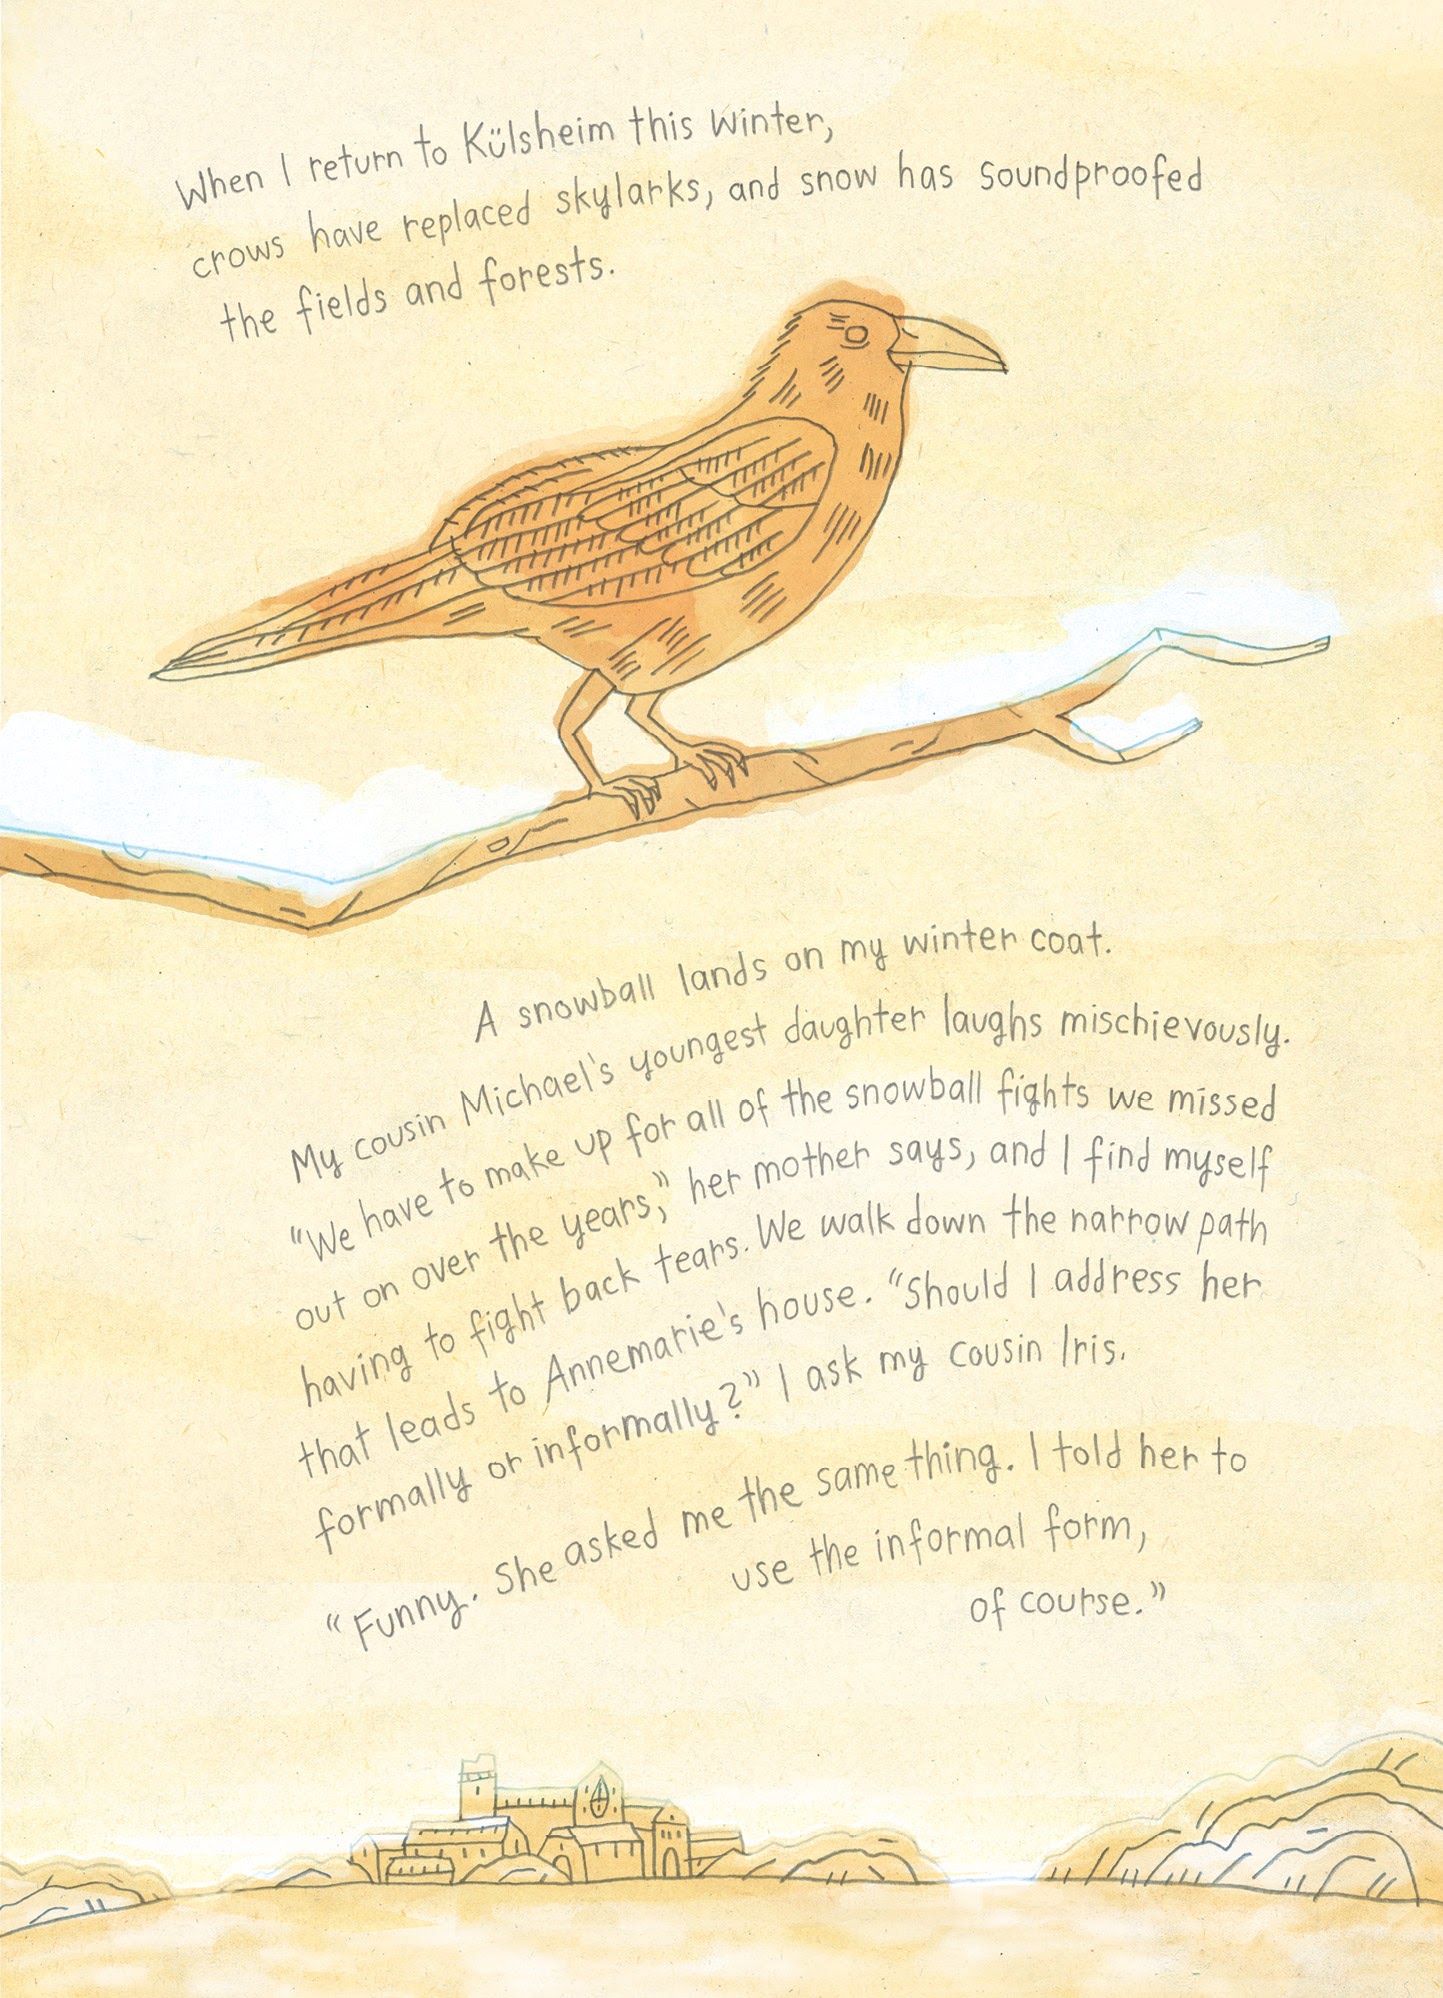 When I return to Külsheim this winter,
crows have replaced skylarks, and snow has soundproofed
the fields and forests.
A snowball lands on my winter coat.
My cousin Michael's youngest daughter laughs mischievously.
“We have to make up for all of the snowball fights we missed
out on over the years,” her mother says, and I find myself
having to fight back tears. We walk down the narrow path
that leads to Annemarie's house. “Should I address her
formally or informally?” I ask my cousin Iris.
“Funny. She asked me the same thing. I told her to
use the informal form,
of course.”